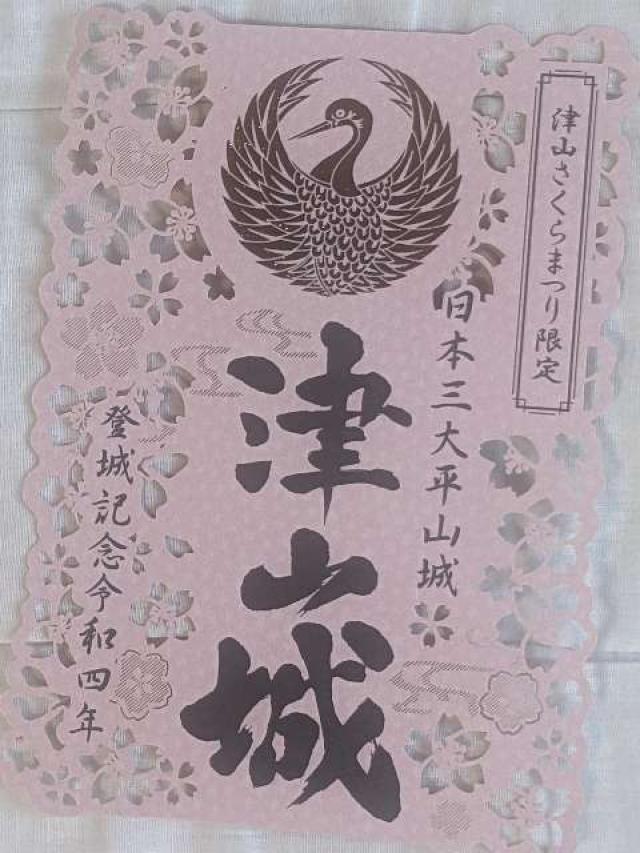 津山さくらまつり限定
日本三大平山城
津山城
登城記念令和四年